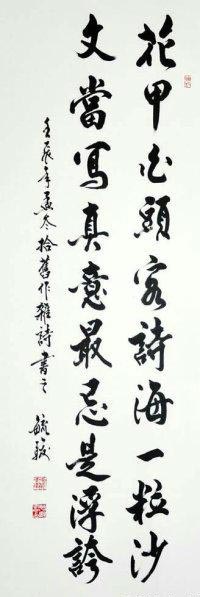 花甲白頭客詩海一粒沙
文當寫真意最忌是浮誇
壬辰年孟冬拾舊作雜詩書之 毓敏